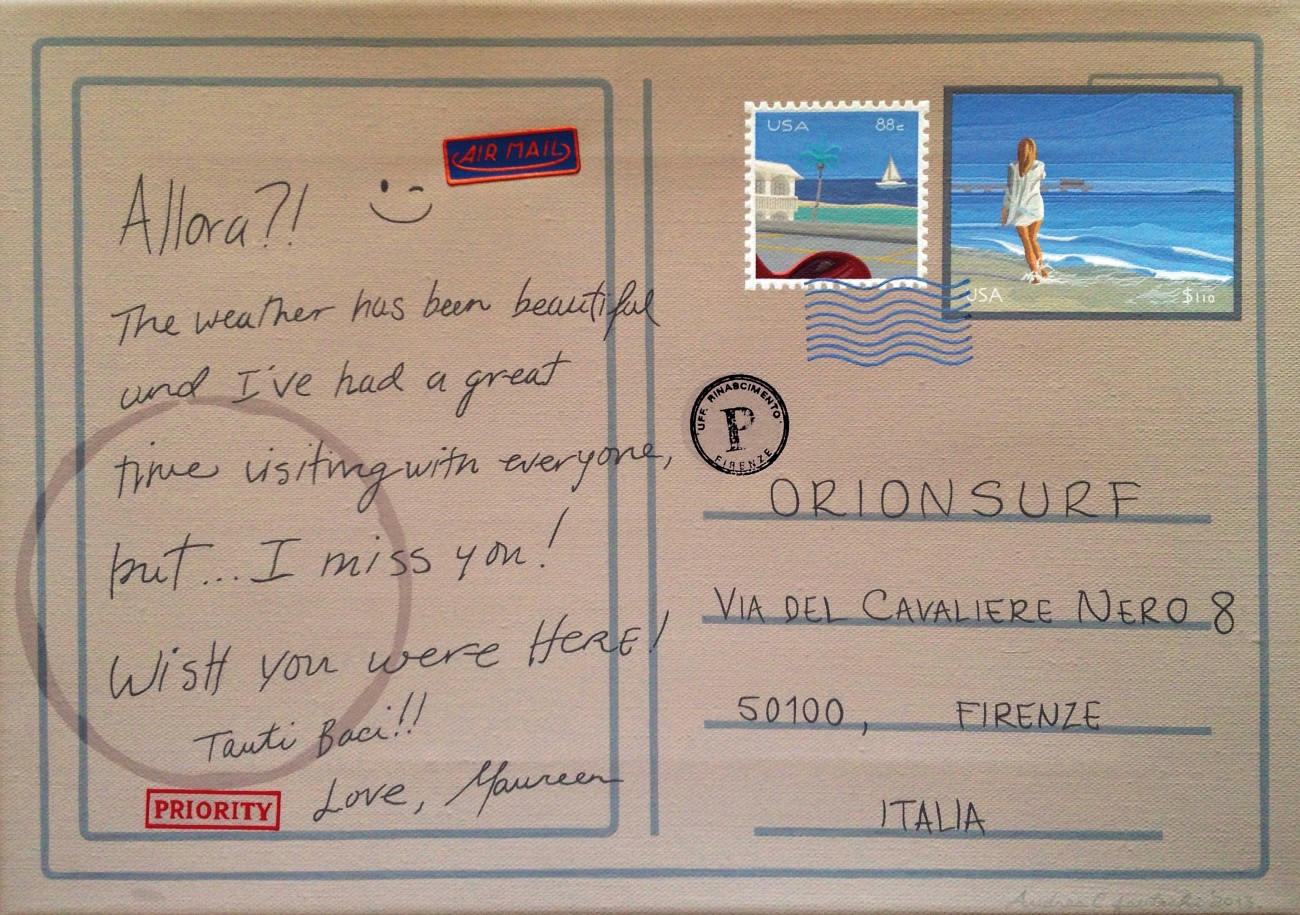 AIR MAIL
Allora?!
The weather has been beautiful
and I've had a great
time visiting with everyone,
but... I miss you!
WisH you were HERE!
Tanti Baci!!
Love, Maureen
PRIORITY
USA 88c
USA $110
UFF. RINASCIMENTO
P
FIRENZE
ORIONSURF
VIA DEL CAVALIERE NERO 8
50100, FIRENZE
ITALIA
Andrea C. 2013